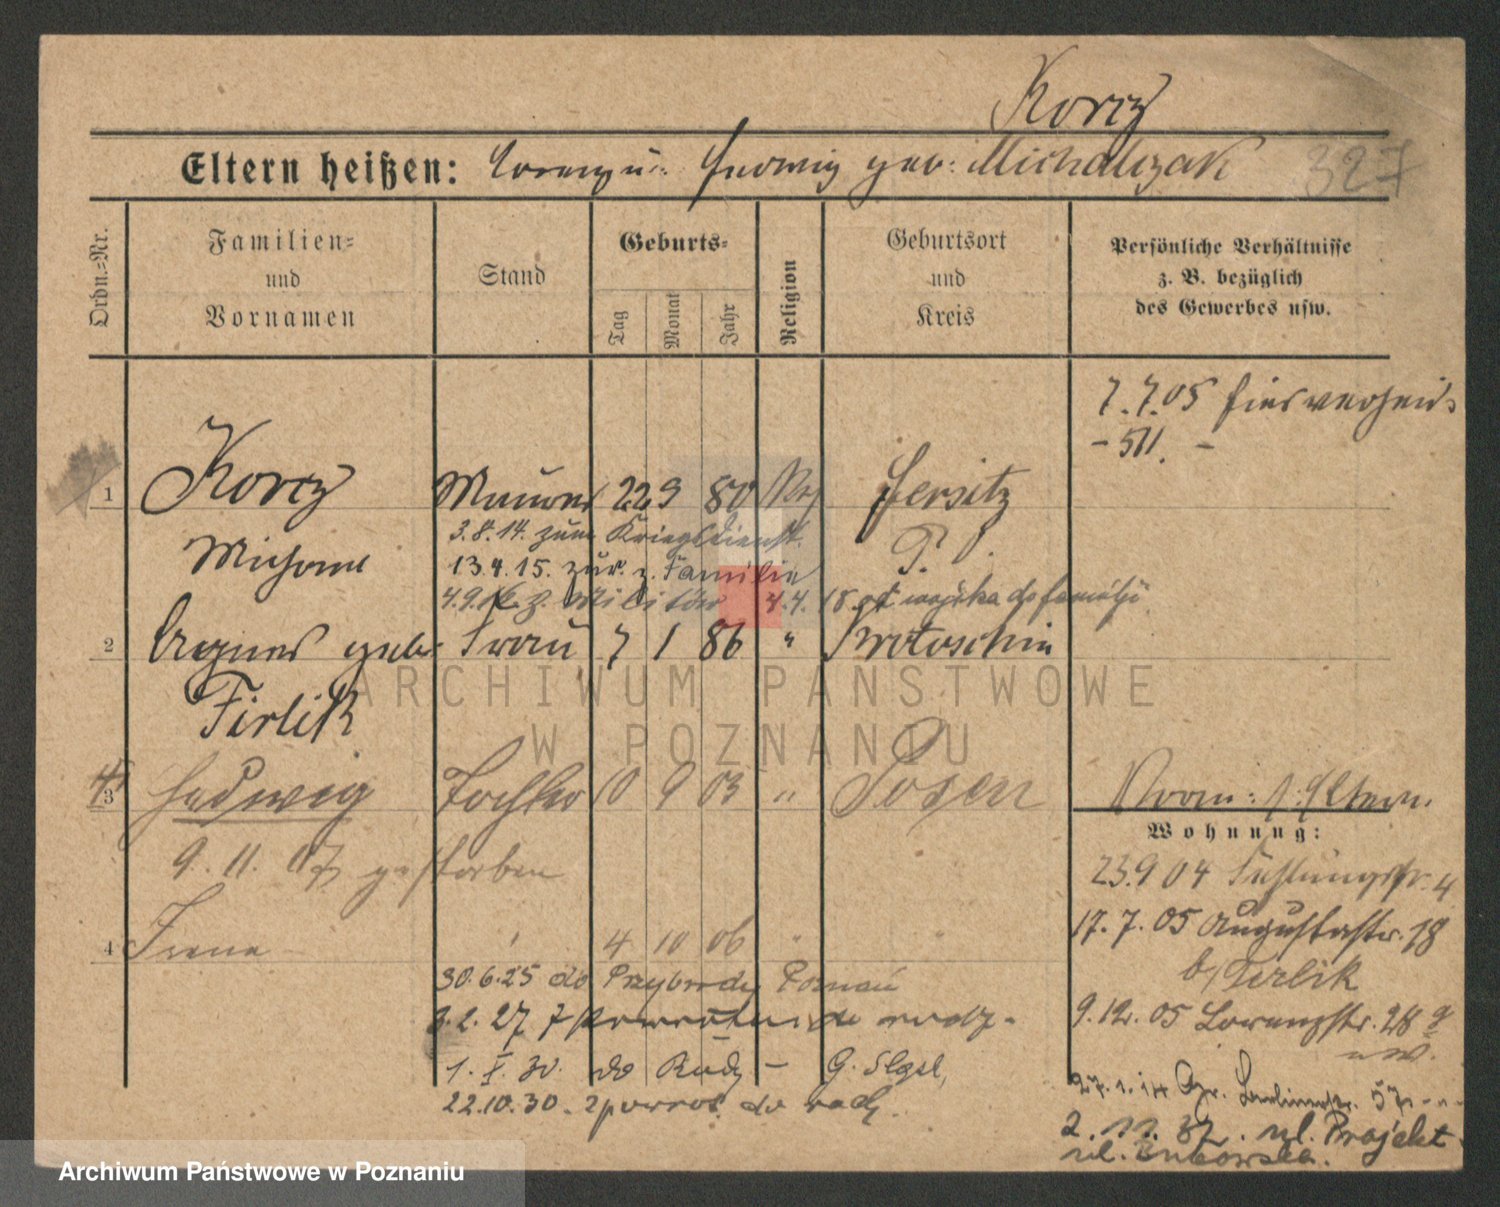 Korcz
Eltern heißen: Lorenz u. Hedwig geb. Michalczak 327
Ordn.-Nr.
Familien-
und
Vornamen
Stand
Geburts-
Tag
Monat
Jahr
Religion
Geburtsort
und
Kreis
Persönliche Verhältnisse
z. B. bezüglich
des Gewerbes usw.
7.7.05 hier verheir.
- 511. -
1 Korcz Maurer 22 9 80 Jersitz
3.8.14. zum Kriegsdienst.
P.
13.4.15. zur. z. Familie
4.9.16. z. Militär 4.4.18. od wojska do familji
2 Agnes geb. Frau 7 1 86 " Krotoschin
Firlik
3 Hedwig Tochter 10 9 03 " Posen
9. 11. 07 gestorben
4 Irena 4 10 06 " "
30.6.25 do Przybrody Poznań
3.2.27 z powrotem do rodz.
1. X. 30. do Rudy - G. Śląsk,
22.10.30. zpowrot. do rodz.
Eltern.
Wohnung:
23.9 04 4
17.7.05 Augustastr. 18
b/ Ferlik
9.12.05 Lorenzstr. 28 a
usw.
27.1.14 Gr. 57
2.11.37. ul. Projekt
ul. Bukowska.
ARCHIWUM PAŃSTWOWE
W POZNANIU
Archiwum Państwowe w Poznaniu